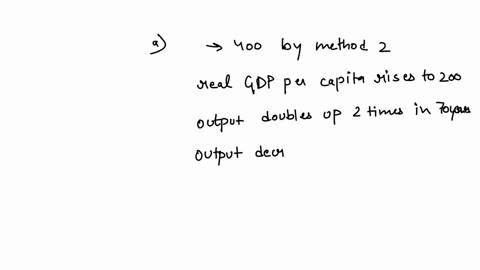 a) → 400 by method 2
real GDP per capita rises to 200
output doubles up 2 times in 70years
output decr